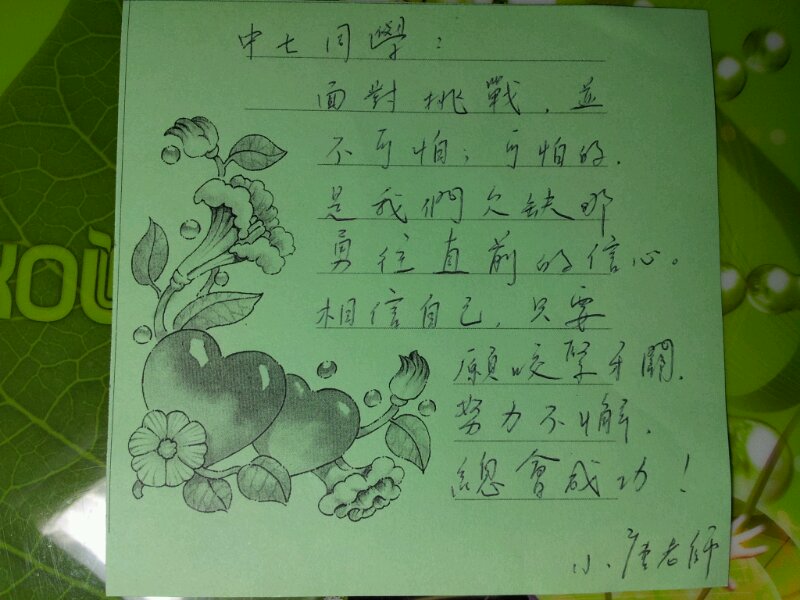 中七同學：
面對挑戰，並
不可怕；可怕的，
是我們欠缺那
勇往直前的信心。
相信自己，只要
願咬緊牙關，
努力不懈，
總會成功！
小唐老師